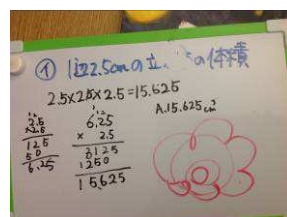 ① 1辺2.5cmの立 の体積
2.5×2.5×2.5=15.625
A.15.625cm³
2.5
×2.5
125
50
6.25
6.25
× 2.5
3125
1250
15.625